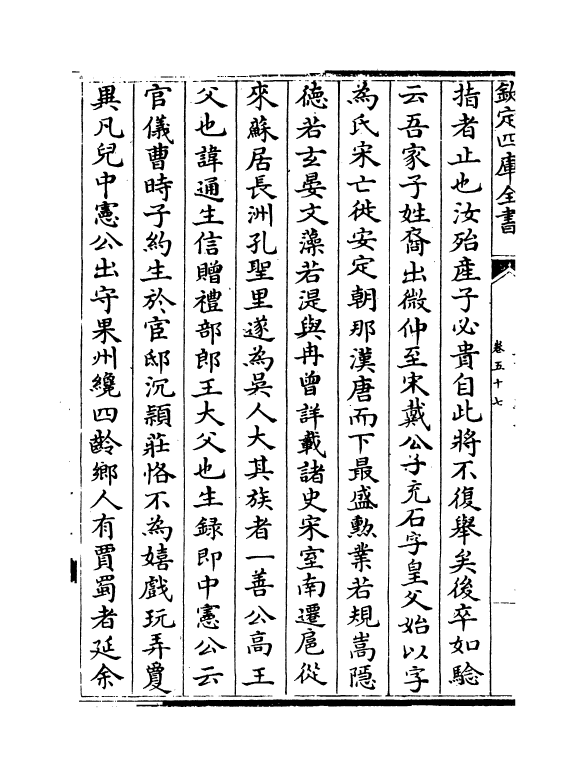 欽定四庫全書
卷五十七
指者止也汝殆産子必貴自此將不復舉矣後卒如驗
云吾家子姓裔出微仲至宋戴公子充石字皇父始以字
為氏宋亡徙安定朝那漢唐而下最盛勲業若規嵩隠
徳若玄晏文藻若湜與冉曾詳載諸史宋室南遷扈從
來蘇居長洲孔聖里遂為吳人大其族者一善公髙王
父也諱通生信贈禮部郎王大父也生録即中憲公云
官儀曹時子約生於宦邸沉穎莊恪不為嬉戲玩弄夐
異凡兒中憲公出守果州纔四齡鄉人有賈蜀者延余